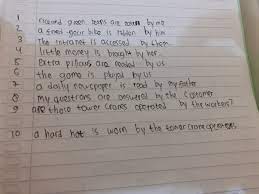 1 colored green jeans are worn by me
2 a fixed gear bike is ridden by him
3 The intranet is accessed by them
4 little money is brought by her
5 Extra pillows are needed by us
6 the game is played by us
7 a daily newspaper is read by my father
8 my questions are answered by the customer
9 are those tower cranes operated by the workers?
10 a hard hat is worn by the tower crane operators